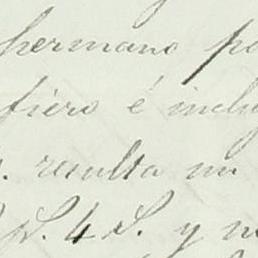 hermano po
fiero é inclu
. resulta un
S. 4 S. y n